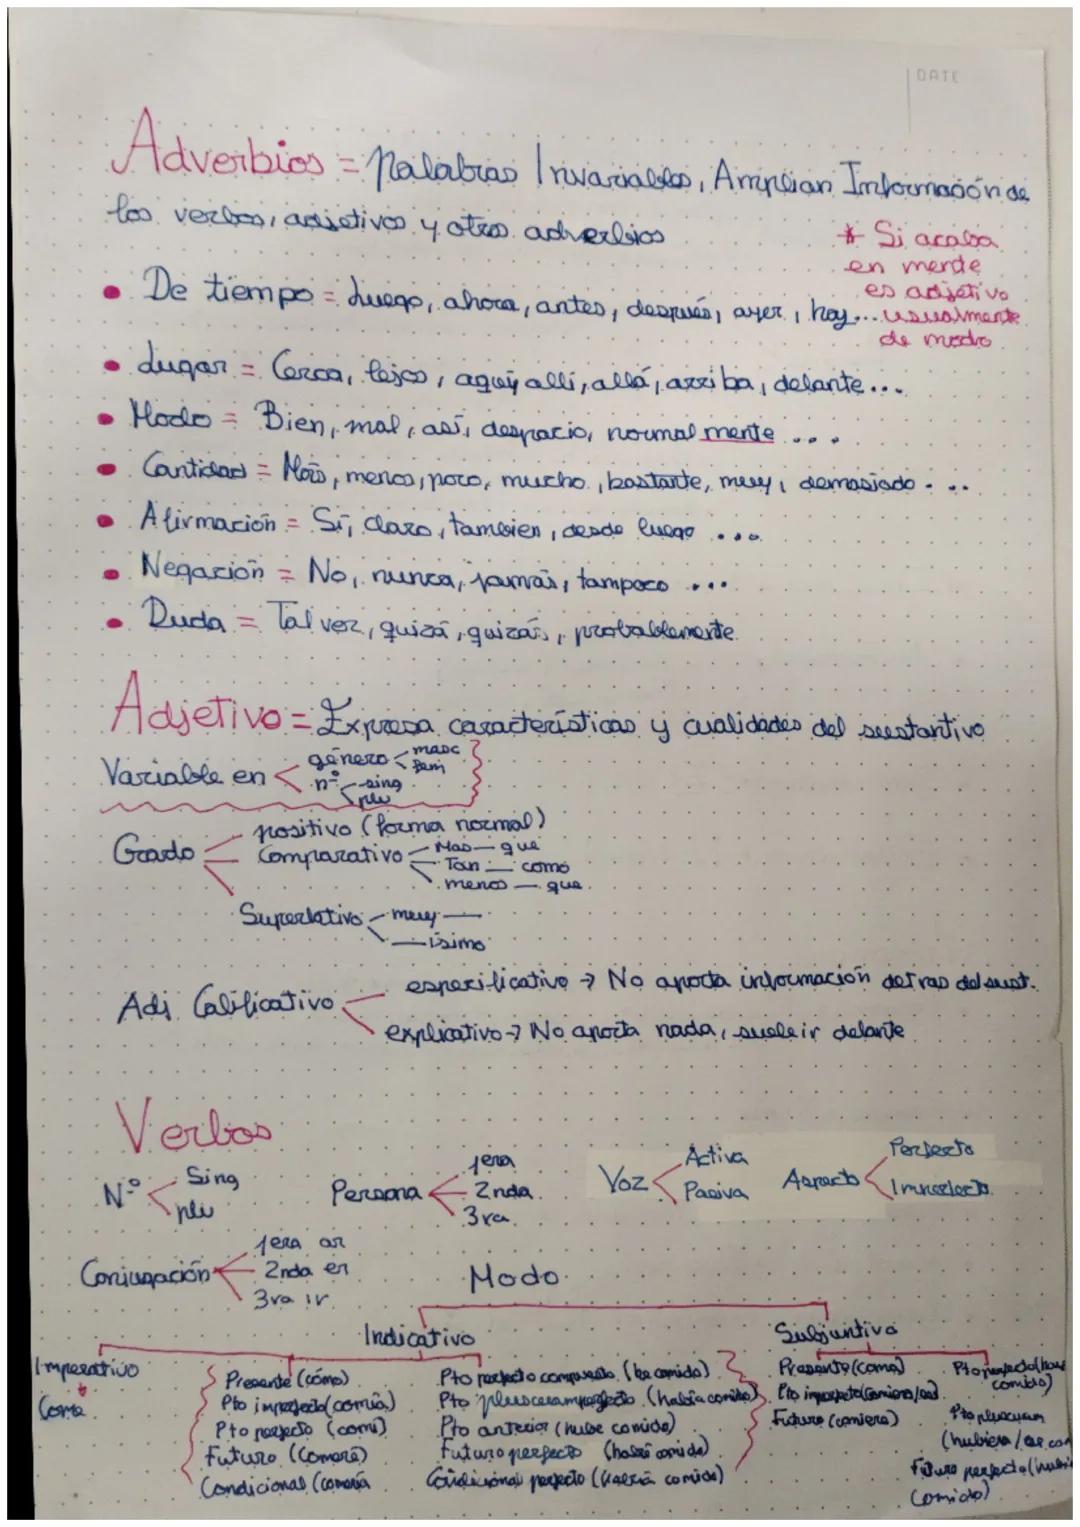 DATE
Adverbios = Palabras Invariables, Amplian Información de
los verbos, adjetivos y otros adverbios
* Si acaba
en mente
es adjetivo
usualmente
de modo
• De tiempo = Luego, ahora, antes, después, ayer, hoy...
• Lugar = Cerca, lejos, aquí, allí, allá, arriba, delante...
• Modo = Bien, mal, así, despacio, normalmente ...
• Cantidad = Más, menos, poco, mucho, bastante, muy, demasiado...
• Afirmación = Sí, claro, tambien, desde luego ...
• Negación = No, nunca, jamás, tampoco ...
• Duda = Tal vez, quizá, quizás, probablemente
Adjetivo = Expresa características y cualidades del sustantivo
Variable en género masc fem
nº sing plu
Grado positivo (forma normal)
Comparativo Mas — que
Tan — como
menos — que
Superlativo muy —
— ísimo
Adj. Calificativo especificativo → No aporta información detras del sust.
explicativo → No aporta nada, suele ir delante
Verbos
Nº Sing plu
Persona 1era 2nda 3ra
Voz Activa Pasiva
Aspecto Perfecto Imperfecto
Conjugación 1era ar
2nda er
3ra ir
Modo
Imperativo
Come
Indicativo
Presente (cómo)
Pto imperfecto (comía)
Pto perfecto (comí)
Futuro (Comeré)
Condicional (comería
Pto perfecto compuesto (he comido)
Pto pluscuamperfecto (había comido)
Pto anterior (hube comido)
Futuro perfecto (habré comido)
Condicional perfecto (habría comido)
Subjuntivo
Presente (coma)
Pto imperfecto (comiera/ese)
Futuro (comiera)
Pto perfecto (haya
comido)
Pto pluscuam
(hubiera/ese com
Futuro perfecto (hubi
comido)